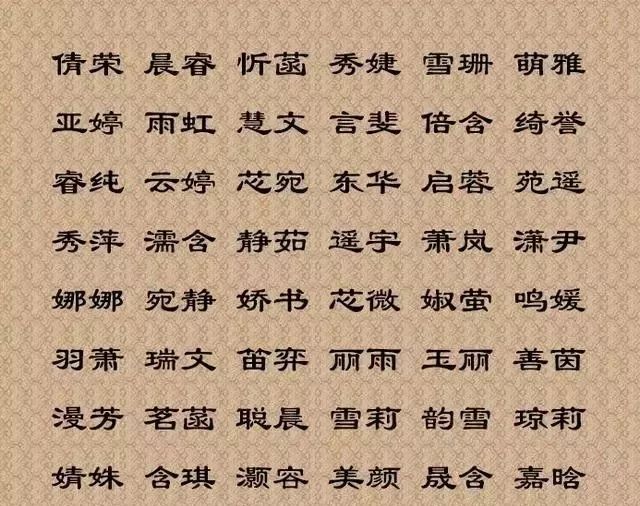 倩荣 晨睿 忻菡 秀婕 雪珊 萌雅
亚婷 雨虹 慧文 言斐 倍含 绮誉
睿纯 云婷 芯宛 东华 启蓉 苑遥
秀萍 濡含 静茹 遥宇 萧岚 潇尹
娜娜 宛静 娇书 芯微 婌萤 鸣媛
羽萧 瑞文 笛弈 丽雨 玉丽 善茵
漫芳 茗菡 聪晨 雪莉 韵雪 琼莉
婧姝 含琪 灏容 美颜 晟含 嘉晗